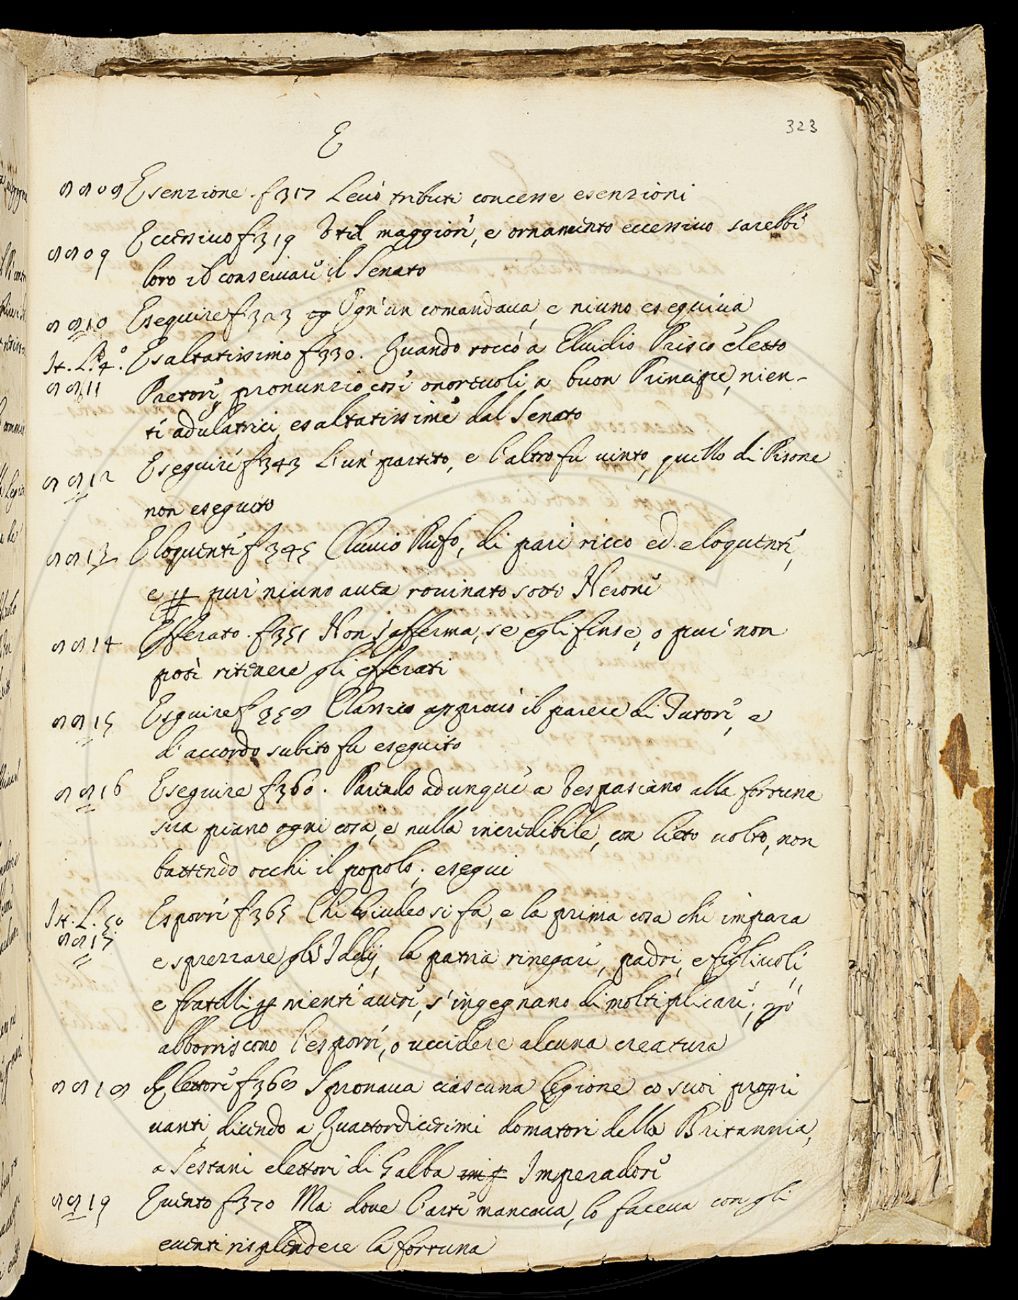 323
E
8808 Esenzione. f 317 Levò tributi concesse esenzioni
8809 Eccessivo f 319 Util maggiore, e ornamento eccessivo sarebbe
loro il conservare il Senato
8810 Eseguire f 323 Ogn'un comandava, e niuno eseguiva
It. L. 4.° Esaltatissimo f 330. Quando toccò a Elvidio Prisco eletto
8811 Pretore, pronunziò così onorevoli a buon Principe, nien-
te adulatrici, esaltatissime dal Senato
8812 Eseguire f 343 L'un partito, e l'altro fu vinto, quello di Pisone
non eseguito
8813 Eloquente f 345 Cluvio Rufo, di pari ricco ed eloquente,
e pur niuno avea rovinato sotto Nerone
8814 Efferato. f 351 Non s'afferma, se egli finse, o pur non
potè ritenere gli efferati
8815 Esguire f 358 Classico approvò il parere di Tutore, e
d'accordo subito fu eseguito
8816 Eseguire f 360. Parendo adunque a Vespasiano alla fortuna
sua piano ogni cosa, e nulla incredibile, con lieto volto, non
battendo occhi il popolo, eseguì
It. L. 5° Esporre f 365 Chi Giudeo si fa, e la prima cosa che impara
8817 e sprezzare gl'Iddij, la patria rinegare, padri, e figlivoli,
e fratelli p niente avere, s'ingegnano di moltiplicare; però
abborriscono l'esporre, o uccidere alcuna creatura
8818 Elettore f 368 Spronava ciascuna legione co suoi propri
vanti, dicendo a Quattordicesimi domatori della Britannia,
a Sestani elettori di Galba Imperadore
8819 Evento f 370 Ma dove l'arte mancava, lo faceva con gli
eventi risplendere la fortuna